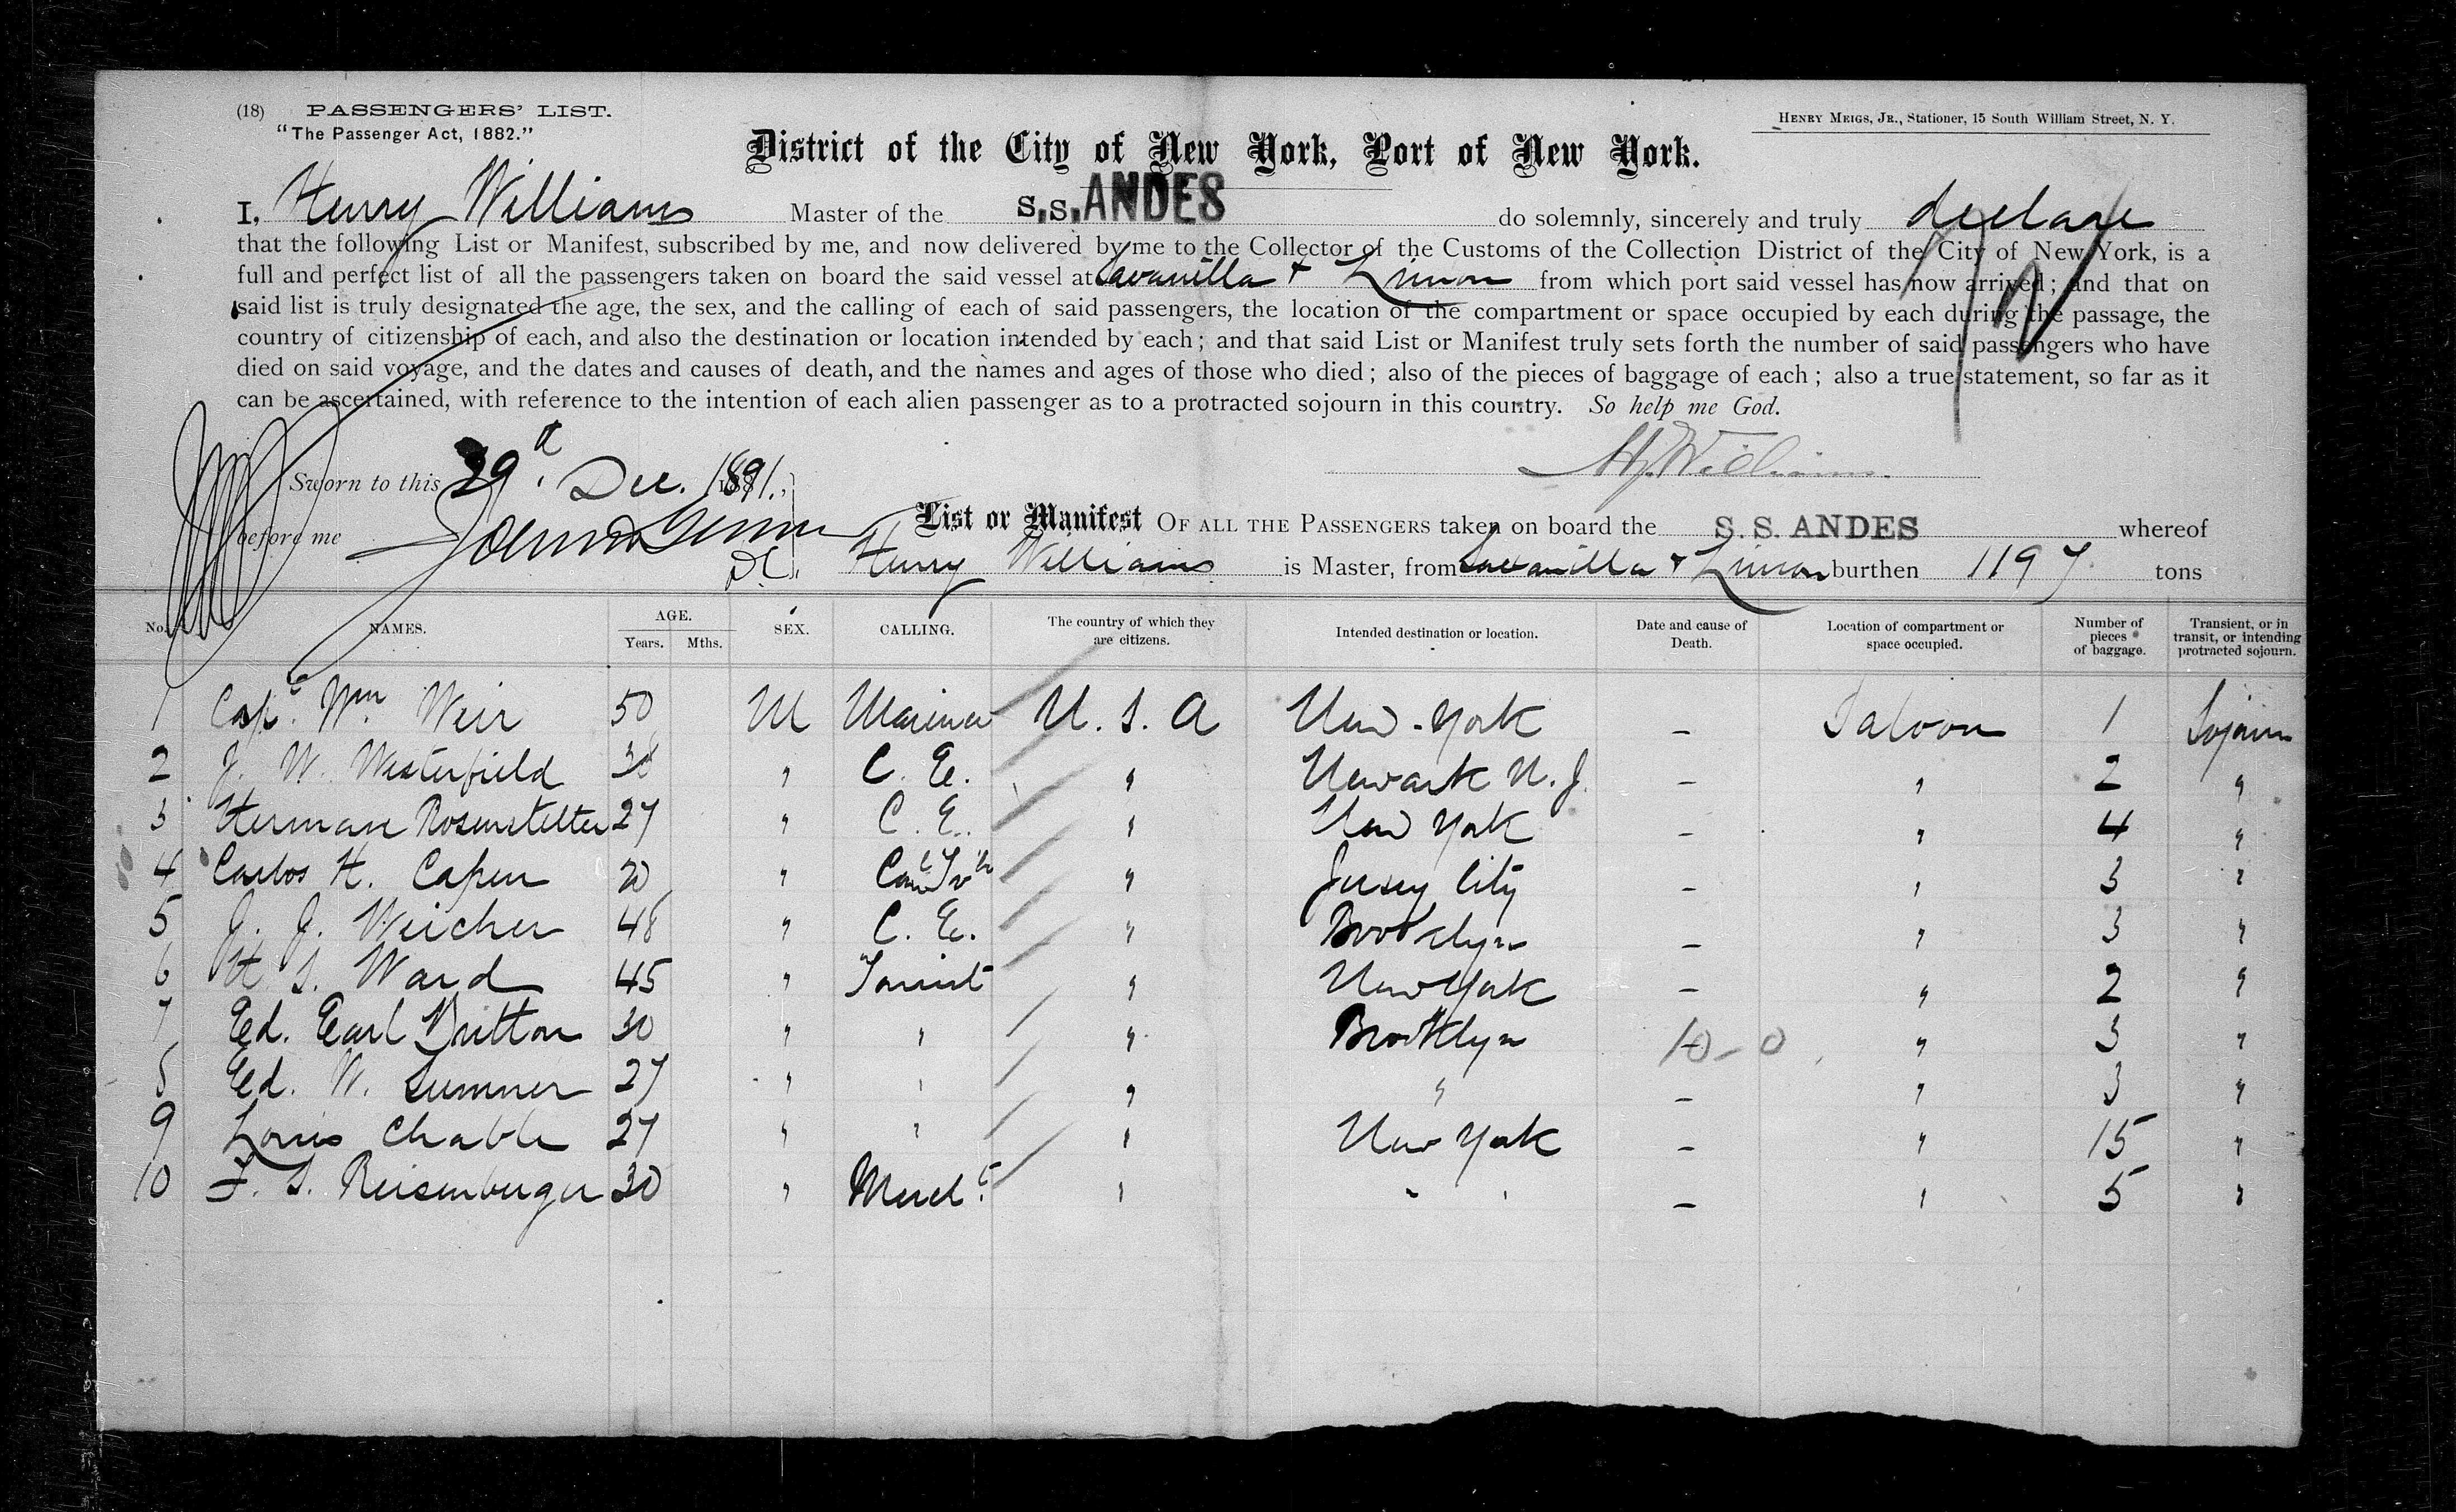 (18) PASSENGERS' LIST.
"The Passenger Act, 1882."
HENRY MEIGS, JR., Stationer, 15 South William Street, N. Y.
District of the City of New York, Port of New York.
I, Henry Williams Master of the S.S. ANDES do solemnly, sincerely and truly declare
that the following List or Manifest, subscribed by me, and now delivered by me to the Collector of the Customs of the Collection District of the City of New York, is a
full and perfect list of all the passengers taken on board the said vessel at Savanilla + Limon from which port said vessel has now arrived; and that on
said list is truly designated the age, the sex, and the calling of each of said passengers, the location of the compartment or space occupied by each during the passage, the
country of citizenship of each, and also the destination or location intended by each; and that said List or Manifest truly sets forth the number of said passengers who have
died on said voyage, and the dates and causes of death, and the names and ages of those who died; also of the pieces of baggage of each; also a true statement, so far as it
can be ascertained, with reference to the intention of each alien passenger as to a protracted sojourn in this country. So help me God.
Hy. Williams.
Sworn to this 29th. Dec. 1891.
before me
List or Manifest OF ALL THE PASSENGERS taken on board the S.S. ANDES whereof
Henry Williams is Master, from Savanilla + Limon burthen 1197 tons
No. NAMES. AGE. Years. Mths. SEX. CALLING. The country of which they are citizens. Intended destination or location. Date and cause of Death. Location of compartment or space occupied. Number of pieces of baggage. Transient, or in transit, or intending protracted sojourn.
1 Capt. Wm. Weir 50 M Mariner U. S. A New-York – Saloon 1 Sojourn
2 J. W. Westerfield 38 " C. E. " Newark N. J. – " 2 "
3 Herman Rosenstetter 27 " C. E. " New York – " 4 "
4 Carlos H. Capen 20 " " Jersey City – " 3 "
5 J. J. Weicher 48 " C. E. " Brooklyn – " 3 "
6 H. S. Ward 45 " Tourist " New York – " 2 "
7 Ed. Earl Britton 30 " " " Brooklyn – 10-0 " 3 "
8 Ed. W. Sumner 27 " " " " – " 3 "
9 Louis Chable 27 " " " New York – " 15 "
10 F. S. Reisenberger 30 " Mercht. " " " – " 5 "